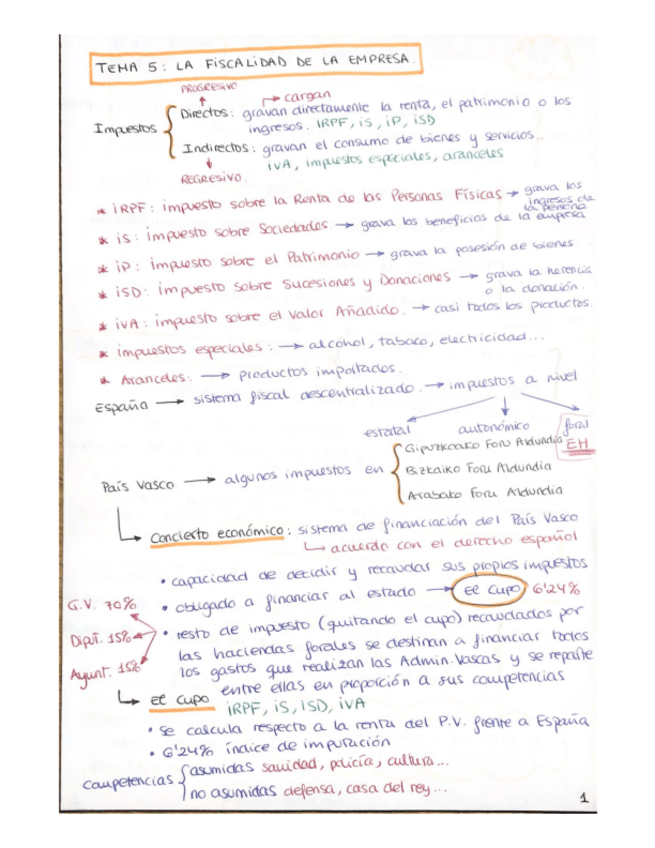 TEMA 5: LA FISCALIDAD DE LA EMPRESA.
PROGRESIVO
cargan
Impuestos
Directos: gravan directamente la renta, el patrimonio o los
ingresos. IRPF, iS, iP, iSD
Indirectos: gravan el consumo de bienes y servicios.
iVA, impuestos especiales, aranceles
REGRESIVO.
* iRPF: impuesto sobre la Renta de las Personas Físicas → grava los
ingresos de
la persona
* iS: impuesto sobre Sociedades → grava los beneficios de la empresa
* iP: impuesto sobre el Patrimonio → grava la posesión de bienes
* iSD: impuesto sobre Sucesiones y Donaciones → grava la herencia
o la donación.
* iVA: impuesto sobre el Valor Añadido. → casi todos los productos.
* impuestos especiales: → alcohol, tabaco, electricidad...
* Aranceles: → productos importados.
España → sistema fiscal descentralizado. → impuestos a nivel
estatal autonómico foral
EH
País Vasco → algunos impuestos en
Gipuzkoako Foru Aldundia
Bizkaiko Foru Aldundia
Arabako Foru Aldundia
Concierto económico: sistema de financiación del País Vasco
acuerdo con el derecho español
• capacidad de decidir y recaudar sus propios impuestos
• obligado a financiar al estado → el cupo 6'24%
• resto de impuesto (quitando el cupo) recaudados por
las haciendas forales se destinan a financiar todos
los gastos que realizan las Admin. Vascas y se reparte
entre ellas en proporción a sus competencias
G.V. 70%
Diput. 15%
Ayunt. 15%
el cupo
IRPF, iS, ISD, iVA
• se calcula respecto a la renta del P.V. frente a España
• 6'24% índice de imputación
Competencias
asumidas sanidad, policía, cultura...
no asumidas defensa, casa del rey...
1